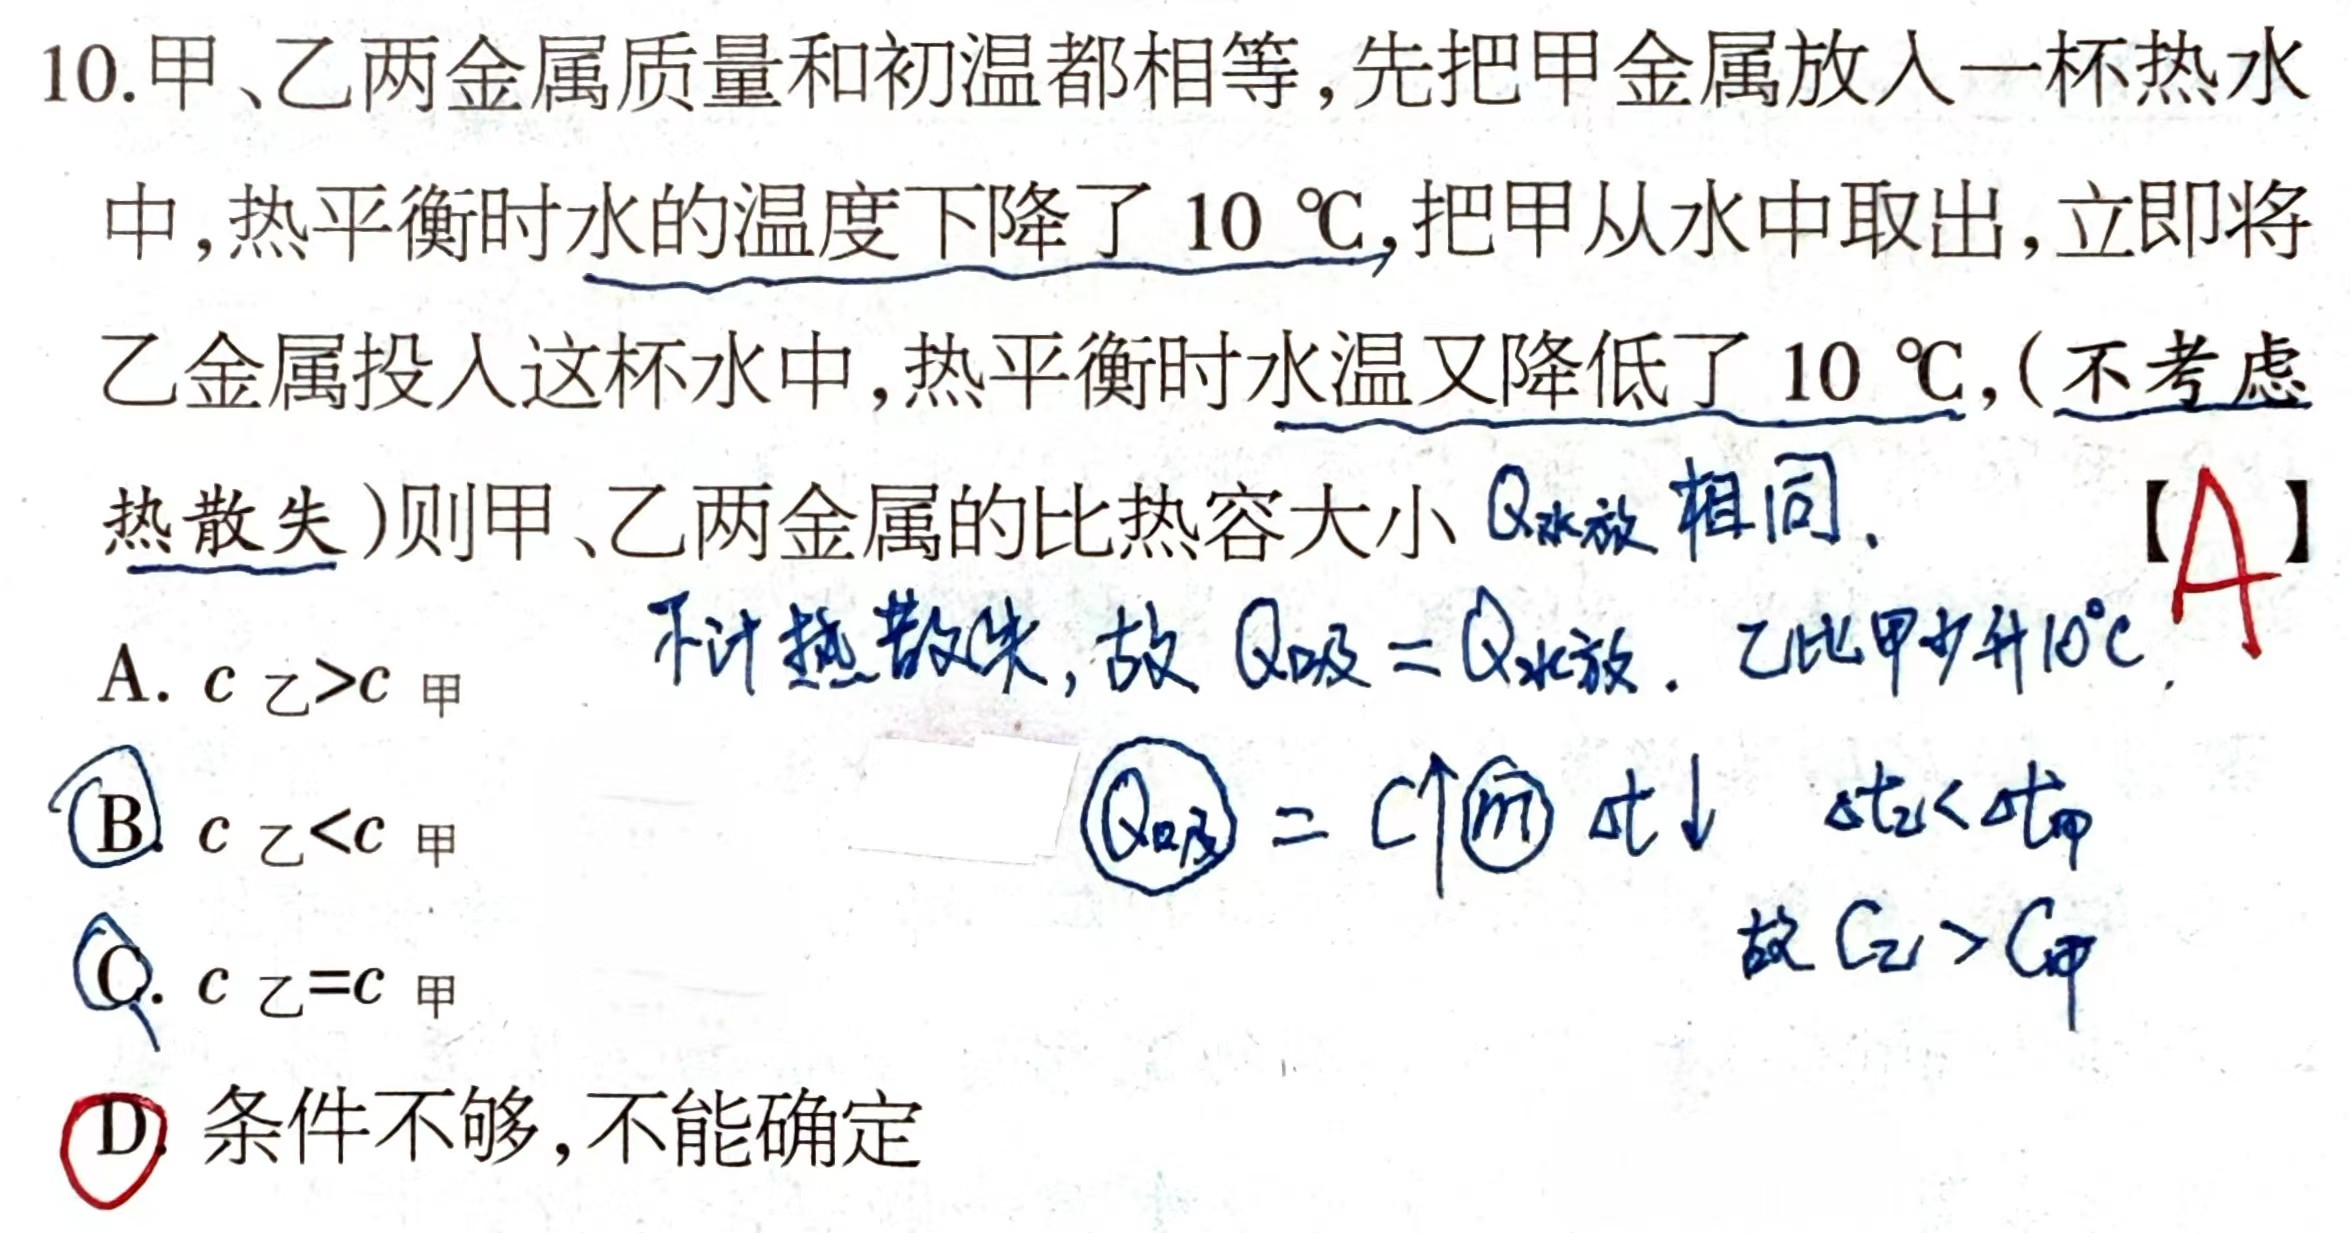 10.甲、乙两金属质量和初温都相等,先把甲金属放入一杯热水
中,热平衡时水的温度下降了 10 ℃,把甲从水中取出,立即将
乙金属投入这杯水中,热平衡时水温又降低了 10 ℃,(不考虑
热散失)则甲、乙两金属的比热容大小 Q水放 相同. 【A】
不计热散失,故 Q吸=Q水放. 乙比甲少升10℃.
A. c 乙>c 甲
Q吸 = C↑ m Δt↓ Δt乙<Δt甲
B. c 乙<c 甲
故 C乙>C甲
C. c 乙=c 甲
D. 条件不够,不能确定